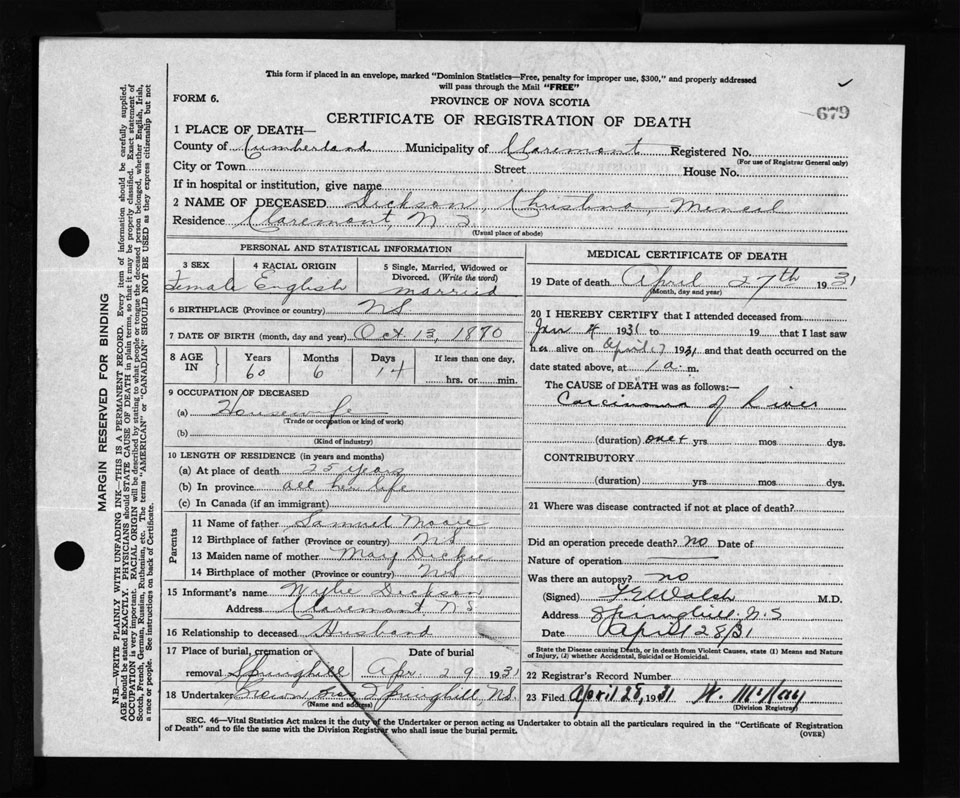 This form if placed in an envelope, marked "Dominion Statistics—Free, penalty for improper use, $300," and properly addressed
will pass through the Mail "FREE"
FORM 6.
PROVINCE OF NOVA SCOTIA
679
CERTIFICATE OF REGISTRATION OF DEATH
1 PLACE OF DEATH—
County of Cumberland Municipality of Claremont Registered No.
(For use of Registrar General only)
City or Town Street House No.
If in hospital or institution, give name
2 NAME OF DECEASED Dickson,
Residence Claremont, N S.
(Usual place of abode)
PERSONAL AND STATISTICAL INFORMATION
3 SEX 4 RACIAL ORIGIN 5 Single, Married, Widowed or
Divorced. (Write the word)
Female English married
6 BIRTHPLACE (Province or country) NS
7 DATE OF BIRTH (month, day and year) Oct 13, 1870
8 AGE IN Years Months Days If less than one day,
60 6 14 hrs. or min.
9 OCCUPATION OF DECEASED
(a) Housewife
(Trade or occupation or kind of work)
(b)
(Kind of industry)
10 LENGTH OF RESIDENCE (in years and months)
(a) At place of death 25 years
(b) In province all her life
(c) In Canada (if an immigrant)
Parents
11 Name of father Samuel Moore
12 Birthplace of father (Province or country) NS
13 Maiden name of mother May Dickie
14 Birthplace of mother (Province or country) NS
15 Informant's name Dickson
Address Claremont NS
16 Relationship to deceased Husband
17 Place of burial, cremation or Date of burial
removal Springhill Apr. 29 1931
18 Undertaker Brown Bros Springhill NS.
(Name and address)
MEDICAL CERTIFICATE OF DEATH
19 Date of death April 27th 1931
(Month, day and year)
20 I HEREBY CERTIFY that I attended deceased from
Jan 4 1931 to 19 that I last saw
her alive on April 17 1931 and that death occurred on the
date stated above, at 1 a.m.
The CAUSE of DEATH was as follows:—
Carcinoma of Liver
(duration) one+ yrs. mos dys.
CONTRIBUTORY
(duration) yrs. mos. dys.
21 Where was disease contracted if not at place of death?
Did an operation precede death? no Date of
Nature of operation
Was there an autopsy? no
(Signed) Walsh M.D.
Address Springhill. N.S
Date April 28/31
State the Disease causing Death, or in death from Violent Causes, state (1) Means and Nature
of Injury, (2) whether Accidental, Suicidal or Homicidal.
22 Registrar's Record Number
23 Filed April 28, 1931
(Division Registrar)
SEC. 46—Vital Statistics Act makes it the duty of the Undertaker or person acting as Undertaker to obtain all the particulars required in the "Certificate of Registration
of Death" and to file the same with the Division Registrar who shall issue the burial permit.
(OVER)
MARGIN RESERVED FOR BINDING
N.B.—WRITE PLAINLY WITH UNFADING INK—THIS IS A PERMANENT RECORD. Every item of information should be carefully supplied.
AGE should be stated EXACTLY. PHYSICIANS should STATE CAUSE OF DEATH in plain terms, so that it may be properly classified. Exact statement of
OCCUPATION is very important. RACIAL ORIGIN will be described by stating to what people or tongue the deceased person belonged, whether English, Irish,
Scotch, French, German, Russian, Ruthenian, etc. The terms "AMERICAN" or "CANADIAN" SHOULD NOT BE USED as they express citizenship but not
a race or people. See instructions on back of Certificate.